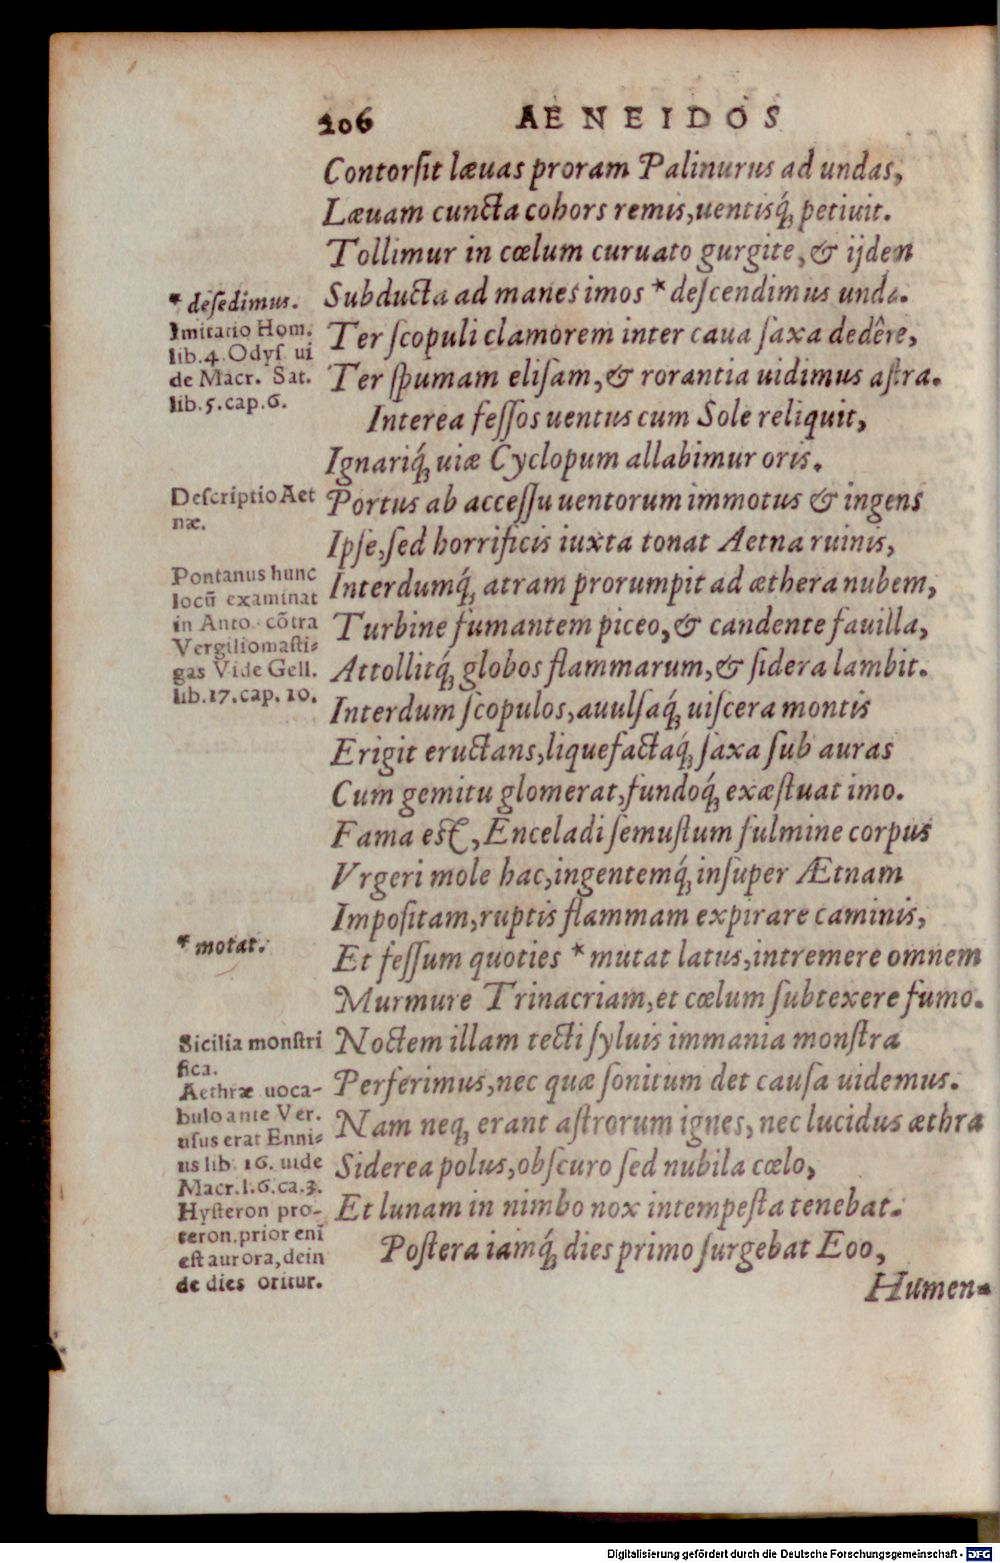 206 AENEIDOS
Contorſit læuas proram Palinurus ad undas,
Læuam cuncta cohors remis, uentisq́; petiuit.
Tollimur in cœlum curuato gurgite, & ijdem
Subducta ad manes imos * deſcendimus unda.
Ter ſcopuli clamorem inter caua ſaxa dedêre,
Ter ſpumam eliſam, & rorantia uidimus aſtra.
Interea feſſos uentus cum Sole reliquit,
Ignariq́; uiæ Cyclopum allabimur oris.
Portus ab acceſſu uentorum immotus & ingens
Ipſe, ſed horrificis iuxta tonat Aetna ruinis,
Interdumq́; atram prorumpit ad æthera nubem,
Turbine fumantem piceo, & candente fauilla,
Attollitq́; globos flammarum, & ſidera lambit.
Interdum ſcopulos, auulſaq́; uiſcera montis
Erigit eructans, liquefactaq́; ſaxa ſub auras
Cum gemitu glomerat, fundoq́; exæſtuat imo.
Fama eſt, Enceladi ſemuſtum fulmine corpus
Vrgeri mole hac, ingentemq́; inſuper Ætnam
Impoſitam, ruptis flammam expirare caminis,
Et feſſum quoties * mutat latus, intremere omnem
Murmure Trinacriam, et cœlum ſubtexere fumo.
Noctem illam tecti ſyluis immania monſtra
Perferimus, nec quæ ſonitum det cauſa uidemus.
Nam neq; erant aſtrorum ignes, nec lucidus æthra
Siderea polus, obſcuro ſed nubila cœlo,
Et lunam in nimbo nox intempeſta tenebat.
Poſtera iamq́; dies primo ſurgebat Eoo,
Humen-
* deſedimus.
Imitatio Hom.
lib. 4. Odyſ ui
de Macr. Sat.
lib. 5. cap. 6.
Deſcriptio Aet
næ.
Pontanus hunc
locũ examinat
in Anto. cõtra
Vergiliomaſti-
gas Vide Gell.
lib. 17. cap. 10.
* motat.
Sicilia monſtri
fica.
Aethræ uoca-
bulo ante Ver.
uſus erat Enni-
us lib. 16. uide
Macr. l. 6. ca. 3.
Hyſteron pro-
teron. prior enĩ
eſt aurora, dein
de dies oritur.
Digitalisierung gefördert durch die Deutsche Forschungsgemeinschaft - DFG